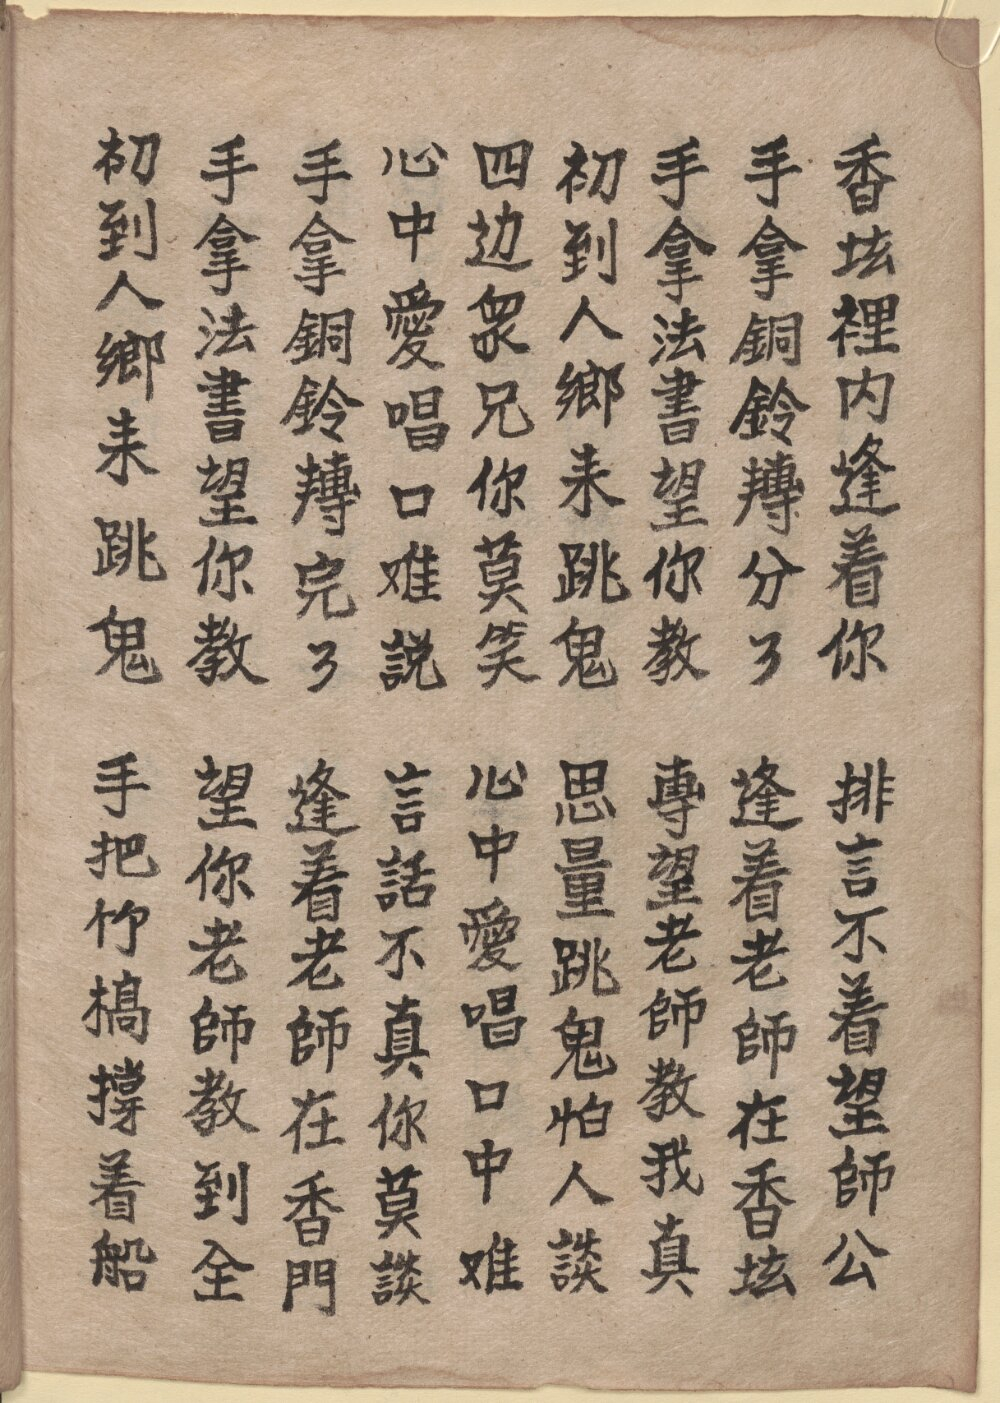 香坛裡内逢着你 排言不着望師公
手拿銅鈴轉分了 逢着老師在香坛
手拿法書望你教 專望老師教我真
初到人鄉来跳鬼 思量跳鬼怕人談
四边眾兄你莫笑 心中愛唱口中难
心中愛唱口难説 言話不真你莫談
手拿銅鈴轉完了 逢着老師在香門
手拿法書望你教 望你老師教到全
初到人鄉来跳鬼 手把竹槁撐着船